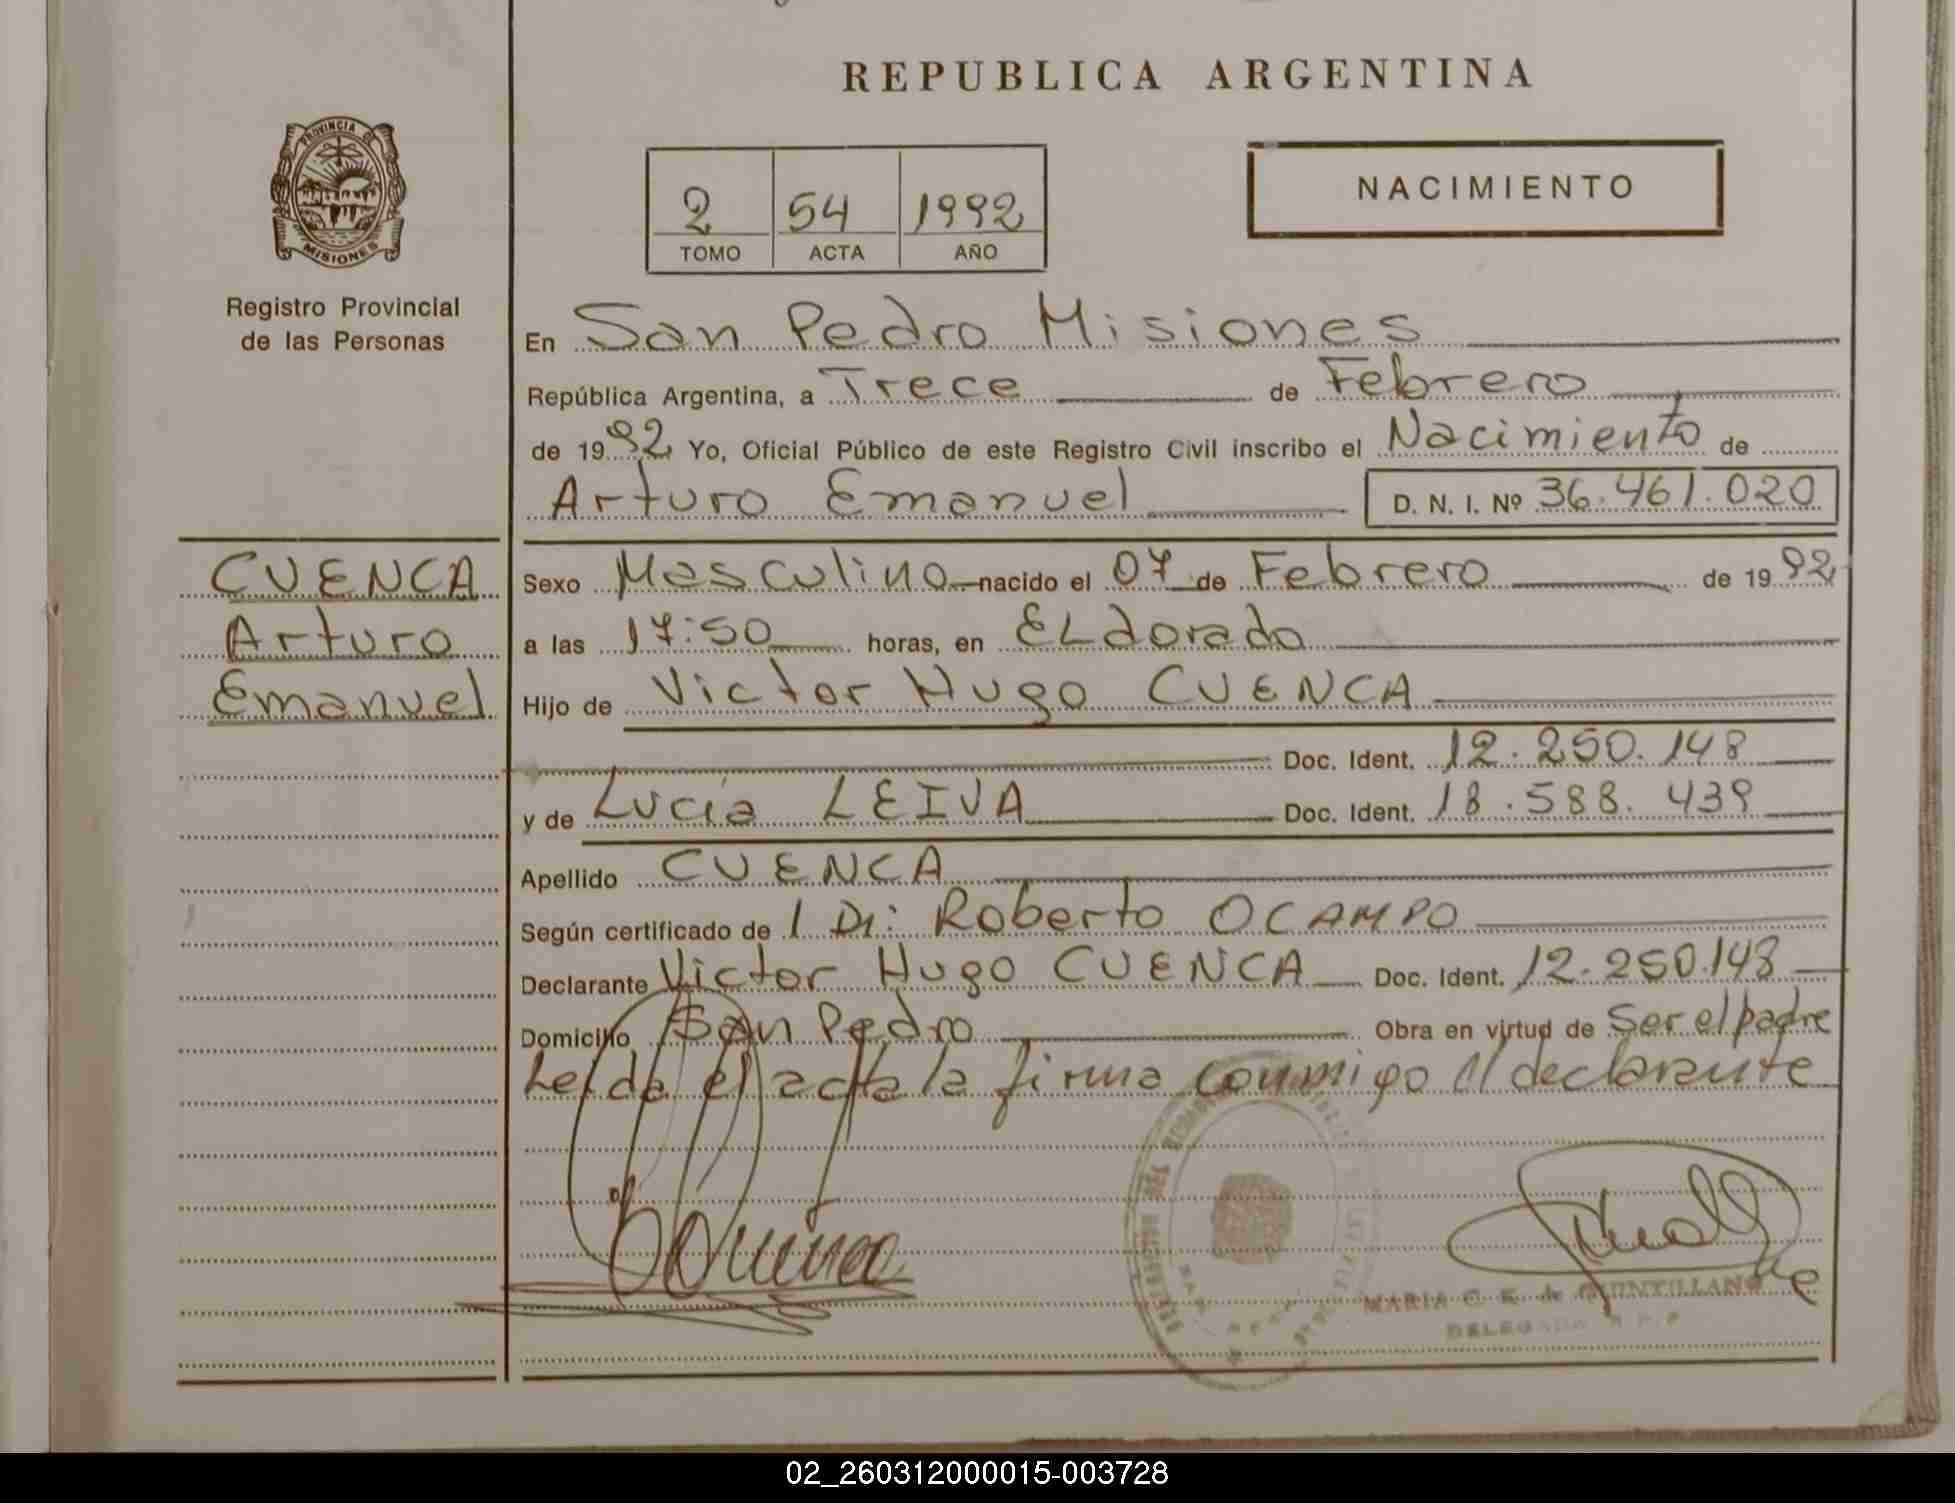 REPUBLICA ARGENTINA
PROVINCIA DE
MISIONES
Registro Provincial
de las Personas
2 54 1992
TOMO ACTA AÑO
NACIMIENTO
En San Pedro Misiones
República Argentina, a Trece de Febrero
de 1992 Yo, Oficial Público de este Registro Civil inscribo el Nacimiento de
Arturo Emanuel D. N. I. Nº 36.461.020
CUENCA
Arturo
Emanuel
Sexo Masculino nacido el 07 de Febrero de 1992
a las 17:50 horas, en ELdorado
Hijo de Victor Hugo CUENCA
Doc. Ident. 12.250.148
y de Lucía LEIVA Doc. Ident. 18.588.439
Apellido CUENCA
Según certificado de 1 Dr: Roberto OCAMPO
Declarante Victor Hugo CUENCA Doc. Ident. 12.250.148
Domicilio San Pedro Obra en virtud de Ser el padre
Leida el acta la firma conmigo el declarante
MARIA C. E. de QUINTILLANO
DELEGADA R P P
02_260312000015-003728